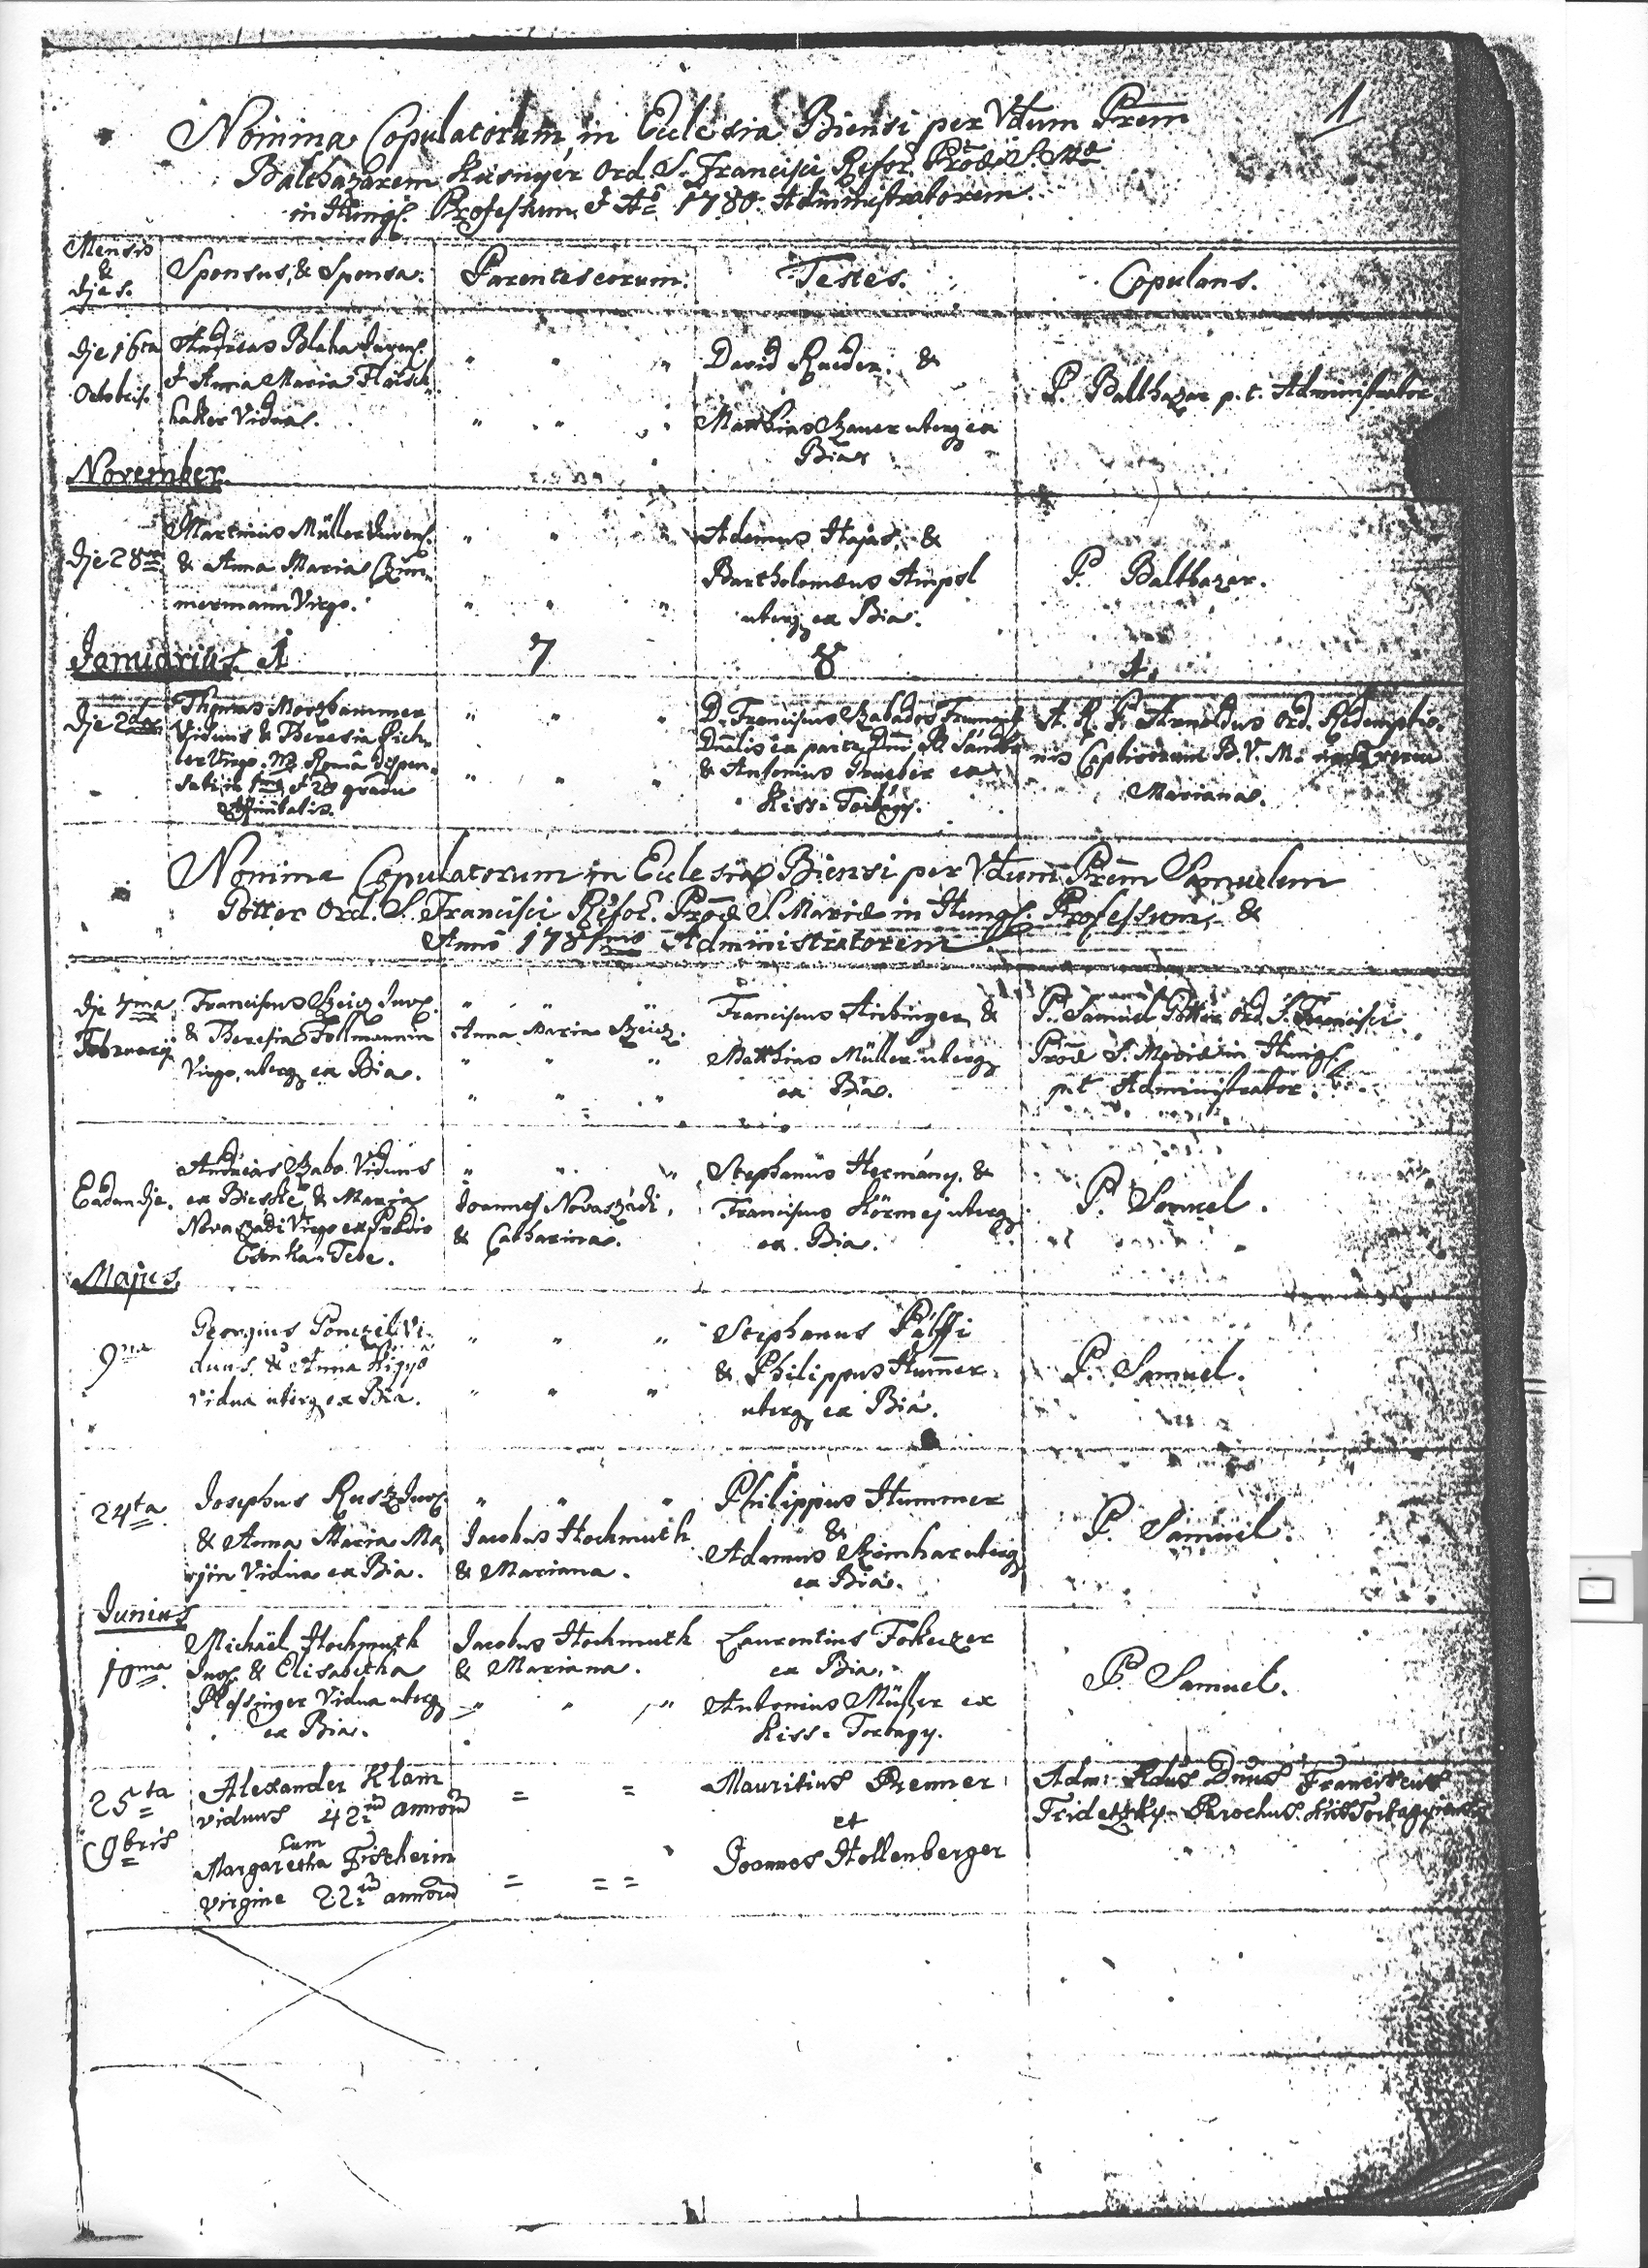 1
Nomina Copulatorum in Eccle sia Biensi per Vdum Prem
Balthazarem Ord. S. Francisci Refor. Prode S. Mae
in Hung. Professum & Ao 1780 Administratorem.
Mensis & dje s.
Sponsus, & Sponsa.
Parentes eorum.
Testes.
Copulans.
dje 16ta Octobris.
Andreas Blaha Juven.
& Anna Maria Flaisch
haker Vidua.
David Rueder. &
Matthias Bauer uterq ex
Bia
P. Balthazar p. t. Administrator
November.
dje 28va
Martinus Müller Juven.
& Anna Maria Czim
mermann Virgo.
Adamus Hajas, &
Bartholomæus Ampol
uterq ex Bia.
P. Balthazar.
Januarius. 1 7 8 1.
dje 2da
Thomas
Viduus & Theresia Pich
ler Virgo. Romā dispen
sati in 1mo & 2do gradu
Affinitatis.
D. Franciscus Szabados
& Antonius ex
Kiss = Torbágy.
A. R. P. Arnoldus Ord. Redemptio
nis Captivorum B. V. M.
Mariana.
Nomina Copulatorum in Eccle sia Biensi per Vdum Prem Samuelem
Potter Ord. S. Francisci Refor. Prode S. Mariæ in Hung. Professum, &
Anno 1781mo Administratorem
dje 7ma
Februarij
Franciscus Szeicz Juv.
& Theresia Follmannin
Virgo, uterq ex Bia.
Anna Maria Szeicz.
Franciscus Aubinger &
Matthias Müller uterq
ex Bia.
P. Samuel Potter Ord. S. Francisci
Prode S. Mariæ in Hung.
p.t Administrator.
Eadem dje.
Andreas Szabo Viduus
ex Bicske, & Maria
Novaszadi Virgo ex Prædio
Csonka Tebe.
Joannes Novaszadi,
& Catharina.
Stephanus Hermány, &
Franciscus Körmej uterq
ex Bia.
P. Samuel.
Majus.
9na
Georgius Ponczel Vi
duus. & Anna Kigyó
Vidua uterq ex Bia.
Stephanus Pálffi
& Philippus Hum̄er.
uterq ex Bia.
P. Samuel.
24ta
Josephus Rusz Juv.
& Anna Maria Ma
yin Vidua ex Bia.
Jacobus Hochmuth
& Mariana.
Philippus Hummer
&
Adamus Szeinhar uterq
ex Bia.
P. Samuel.
Junius
10ma
Michaël Hochmuth
Juv. & Elisabetha
Plessinger Vidua uterq
ex Bia.
Jacobus Hochmuth
& Mariana.
Laurentius Fokerzer
ex Bia,
Antonius Müller ex
Kiss = Torbagy.
P. Samuel.
25ta
9bris
Alexander Klam
viduus 42 annorū
cum
Margaretha Fischerin
virgine 22 annorū
Mauritius Renner
et
Joannes Hollenberger
Adm: Rdus Dnus Franciscus
Fridetzky Parochus Kiss Torbagyiensis